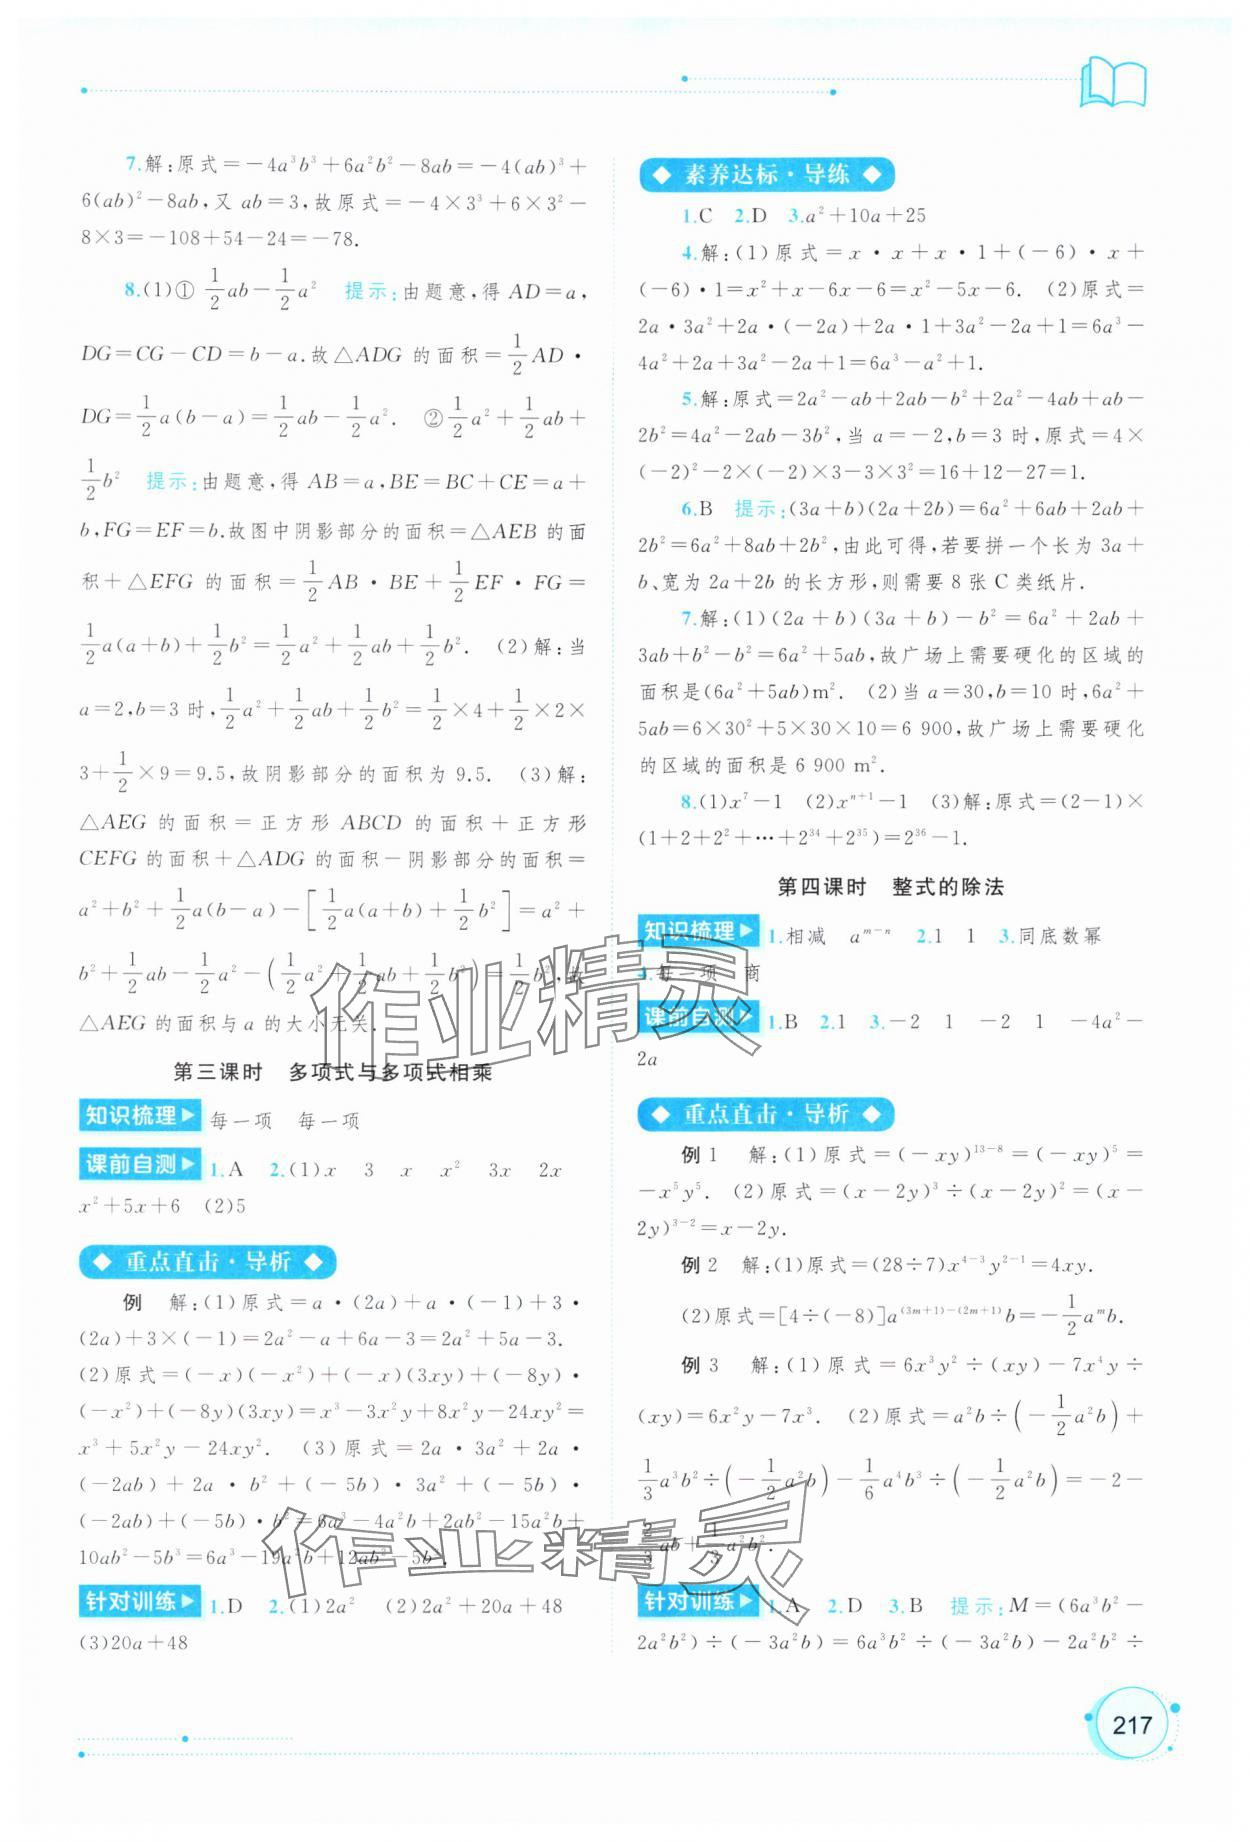 7.解:原式=-4a³b³+6a²b²-8ab=-4(ab)³+
6(ab)²-8ab,又 ab=3,故原式=-4×3³+6×3²-
8×3=-108+54-24=-78.
8.(1)① 1/2ab-1/2a² 提示:由题意,得 AD=a,
DG=CG-CD=b-a.故△ADG 的面积=1/2AD·
DG=1/2a(b-a)=1/2ab-1/2a². ②1/2a²+1/2ab+
1/2b² 提示:由题意,得 AB=a,BE=BC+CE=a+
b,FG=EF=b.故图中阴影部分的面积=△AEB 的面
积+△EFG 的面积=1/2AB·BE+1/2EF·FG=
1/2a(a+b)+1/2b²=1/2a²+1/2ab+1/2b². (2)解:当
a=2,b=3 时,1/2a²+1/2ab+1/2b²=1/2×4+1/2×2×
3+1/2×9=9.5,故阴影部分的面积为 9.5. (3)解:
△AEG 的面积=正方形 ABCD 的面积+正方形
CEFG 的面积+△ADG 的面积-阴影部分的面积=
a²+b²+1/2a(b-a)-[1/2a(a+b)+1/2b²]=a²+
b²+1/2ab-1/2a²-(1/2a²+1/2ab+1/2b²)=1/2b²,故
△AEG 的面积与 a 的大小无关.
第三课时 多项式与多项式相乘
知识梳理 每一项 每一项
课前自测 1.A 2.(1)x 3 x x² 3x 2x
x²+5x+6 (2)5
重点直击·导析
例 解:(1)原式=a·(2a)+a·(-1)+3·
(2a)+3×(-1)=2a²-a+6a-3=2a²+5a-3.
(2)原式=(-x)(-x²)+(-x)(3xy)+(-8y)·
(-x²)+(-8y)(3xy)=x³-3x²y+8x²y-24xy²=
x³+5x²y-24xy². (3)原式=2a·3a²+2a·
(-2ab)+2a·b²+(-5b)·3a²+(-5b)·
(-2ab)+(-5b)·b²=6a³-4a²b+2ab²-15a²b+
10ab²-5b³=6a³-19a²b+12ab²-5b³.
针对训练 1.D 2.(1)2a² (2)2a²+20a+48
(3)20a+48
素养达标·导练
1.C 2.D 3.a²+10a+25
4.解:(1)原式=x·x+x·1+(-6)·x+
(-6)·1=x²+x-6x-6=x²-5x-6. (2)原式=
2a·3a²+2a·(-2a)+2a·1+3a²-2a+1=6a³-
4a²+2a+3a²-2a+1=6a³-a²+1.
5.解:原式=2a²-ab+2ab-b²+2a²-4ab+ab-
2b²=4a²-2ab-3b²,当 a=-2,b=3 时,原式=4×
(-2)²-2×(-2)×3-3×3²=16+12-27=1.
6.B 提示:(3a+b)(2a+2b)=6a²+6ab+2ab+
2b²=6a²+8ab+2b²,由此可得,若要拼一个长为 3a+
b、宽为 2a+2b 的长方形,则需要 8 张 C 类纸片.
7.解:(1)(2a+b)(3a+b)-b²=6a²+2ab+
3ab+b²-b²=6a²+5ab,故广场上需要硬化的区域的
面积是(6a²+5ab)m². (2)当 a=30,b=10 时,6a²+
5ab=6×30²+5×30×10=6 900,故广场上需要硬化
的区域的面积是 6 900 m².
8.(1)x⁷-1 (2)xⁿ⁺¹-1 (3)解:原式=(2-1)×
(1+2+2²+…+2³⁴+2³⁵)=2³⁶-1.
第四课时 整式的除法
知识梳理 1.相减 aᵐ⁻ⁿ 2.1 1 3.同底数幂
4.每一项 商
课前自测 1.B 2.1 3.-2 1 -2 1 -4a²-
2a
重点直击·导析
例 1 解:(1)原式=(-xy)¹³⁻⁸=(-xy)⁵=
-x⁵y⁵. (2)原式=(x-2y)³÷(x-2y)²=(x-
2y)³⁻²=x-2y.
例 2 解:(1)原式=(28÷7)x⁴⁻³y²⁻¹=4xy.
(2)原式=[4÷(-8)]a⁽³ᵐ⁺¹⁾⁻⁽²ᵐ⁺¹⁾b=-1/2aᵐb.
例 3 解:(1)原式=6x³y²÷(xy)-7x⁴y÷
(xy)=6x²y-7x³. (2)原式=a²b÷(-1/2a²b)+
1/3a³b²÷(-1/2a²b)-1/6a⁴b³÷(-1/2a²b)=-2-
2/3ab+1/3a²b².
针对训练 1.A 2.D 3.B 提示:M=(6a³b²-
2a²b²)÷(-3a²b)=6a³b²÷(-3a²b)-2a²b²÷
217
作业精灵
作业精灵